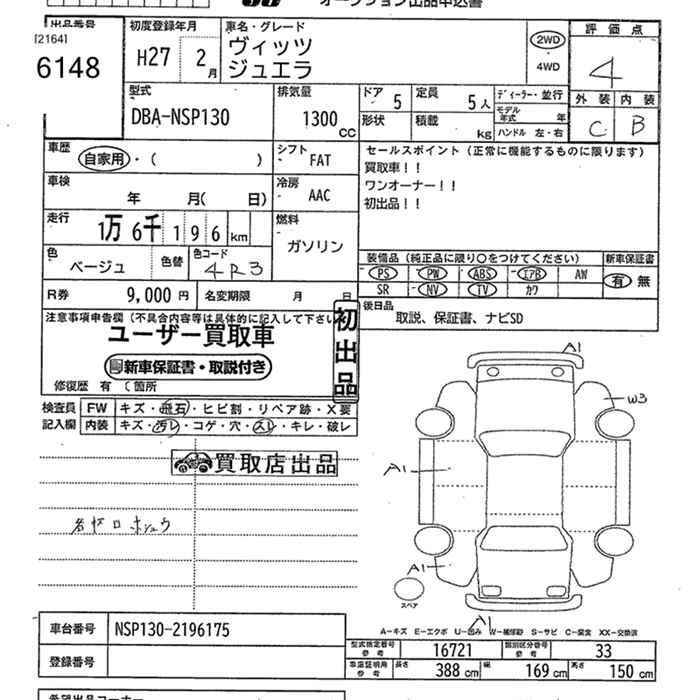 オークション出品申込書
出品番号 初度登録年月 車名・グレード 評価点
[2164]
6148
H27 2月
ヴィッツ
ジュエラ
2WD
4WD
4
型式 排気量 ドア 定員 ディーラー・並行 外装 内装
DBA-NSP130 1300cc 5 5人 モデル年式 年 C B
形状 積載 kg ハンドル 左・右
車歴 シフト セールスポイント(正常に機能するものに限ります)
自家用・( ) FAT
買取車!!
車検 冷房 ワンオーナー!!
年 月( 日) AAC 初出品!!
走行 燃料
1万6千196km ガソリン
色 色替 色コード 装備品(純正品に限り○をつけてください) 新車保証書
ベージュ 4R3
PS PW ABS エアB AW 有 無
SR NV TV カワ
R券 9,000円 名変期限 月 日
後日品
取説、保証書、ナビSD
注意事項申告欄(不具合内容等は具体的に記入して下さい
ユーザー買取車
初出品
新車保証書・取説付き
修復歴 有 (箇所
検査員 FW キズ・飛石・ヒビ割・リペア跡・X要
記入欄 内装 キズ・汚レ・コゲ・穴・スレ・キレ・破レ
買取店出品
A1
W3
A1
A1
スペア
A1
A-キズ E-エクボ U-凹み W-補修跡 S-サビ C-腐食 XX-交換済
車台番号 NSP130-2196175
型式指定番号参考 16721 類別区分番号参考 33
登録番号
車庫証明用参考 長さ 388cm 幅 169cm 高さ 150cm
希望出品コーナー